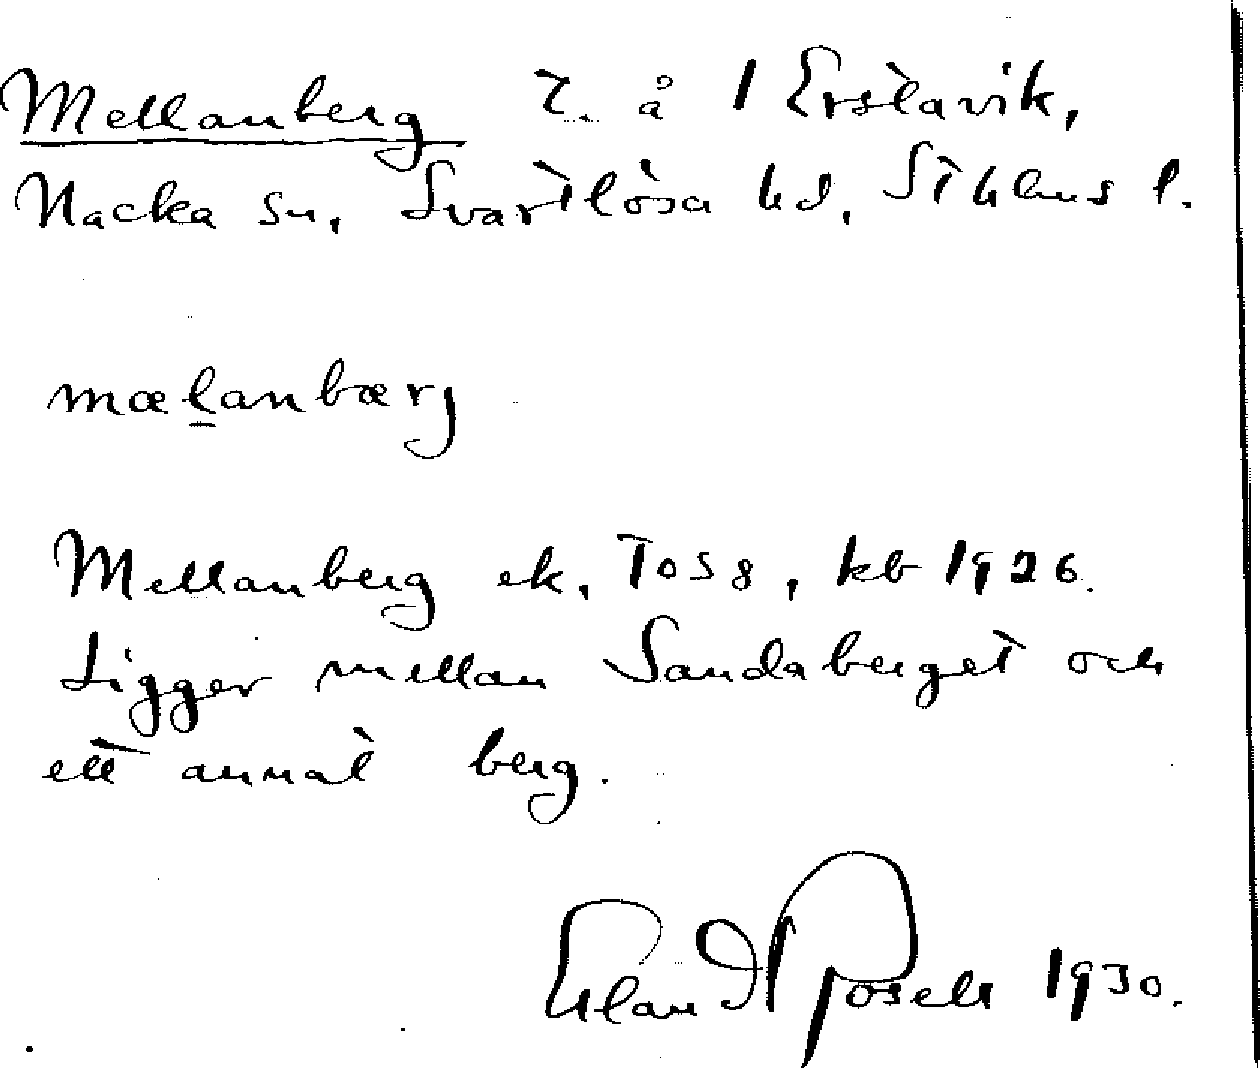 Mellanberg t. å 1 Erstavik,
Nacka sn, Svartlösa hd, Sthlms l.
mælanbærj
Mellanberg ek, To58, kb 1926.
Ligger mellan Sandaberget och
ett annat berg.
Erland Rosell 1930.